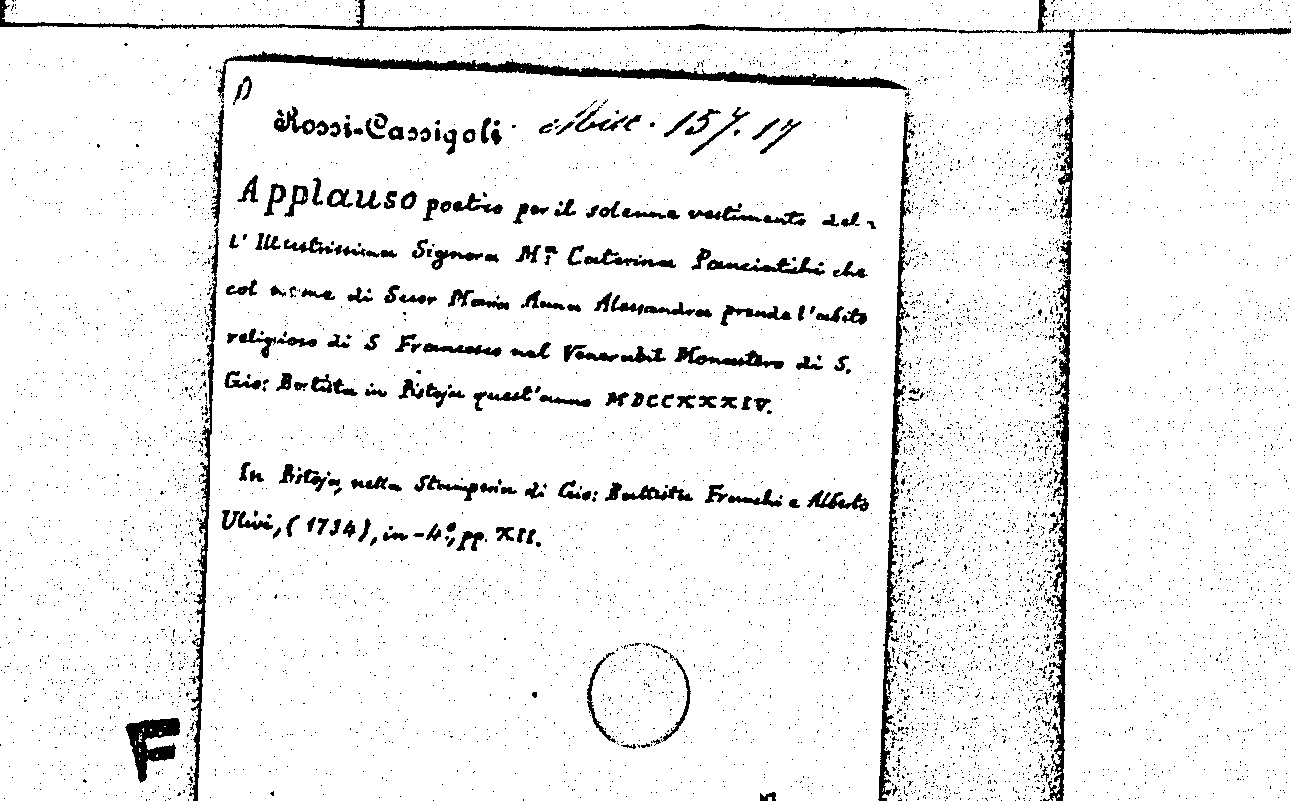 Rossi-Cassigoli. Misc. 157.17
Applauso poetico per il solenne vestimento del-
l'Illustrissima Signora M.ª Caterina Panciatichi che
col nome di Suor Maria Anna Alessandra prende l'abito
religioso di S Francesco nel Venerabil Monastero di S.
Gio: Battista in Pistoja quest'anno MDCCXXXIV.
In Pistoja, nella Stamperia di Gio: Battista Franchi e Alberto
Ulivi, (1734), in-4º, pp. XII.
F